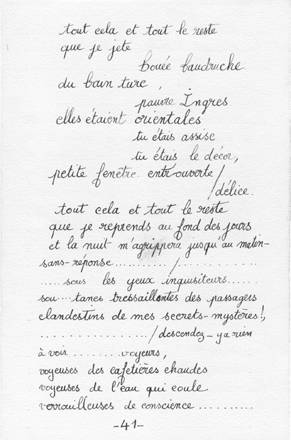 tout cela et tout le reste
que je jete
bouée baudruche
du bain turc,
pauvre Ingres
elles étaient orientales
tu étais assise
tu étais le décor,
petite fenêtre entr'ouverte/
/délice.
tout cela et tout le reste
que je reprends au fond des jours
et la nuit m'agrippera jusqu'au matin-
sans-réponse............/............/
......sous les yeux inquisiteurs......
sou....tanes tressaillantes des passagers
clandestins de mes secrets-mystères!,
....................../descendez-ya rien
à vois..........voyeurs,
voyeuses des cafetières chaudes
voyeuses de l'eau qui coule
verrouilleuses de conscience............
-41-